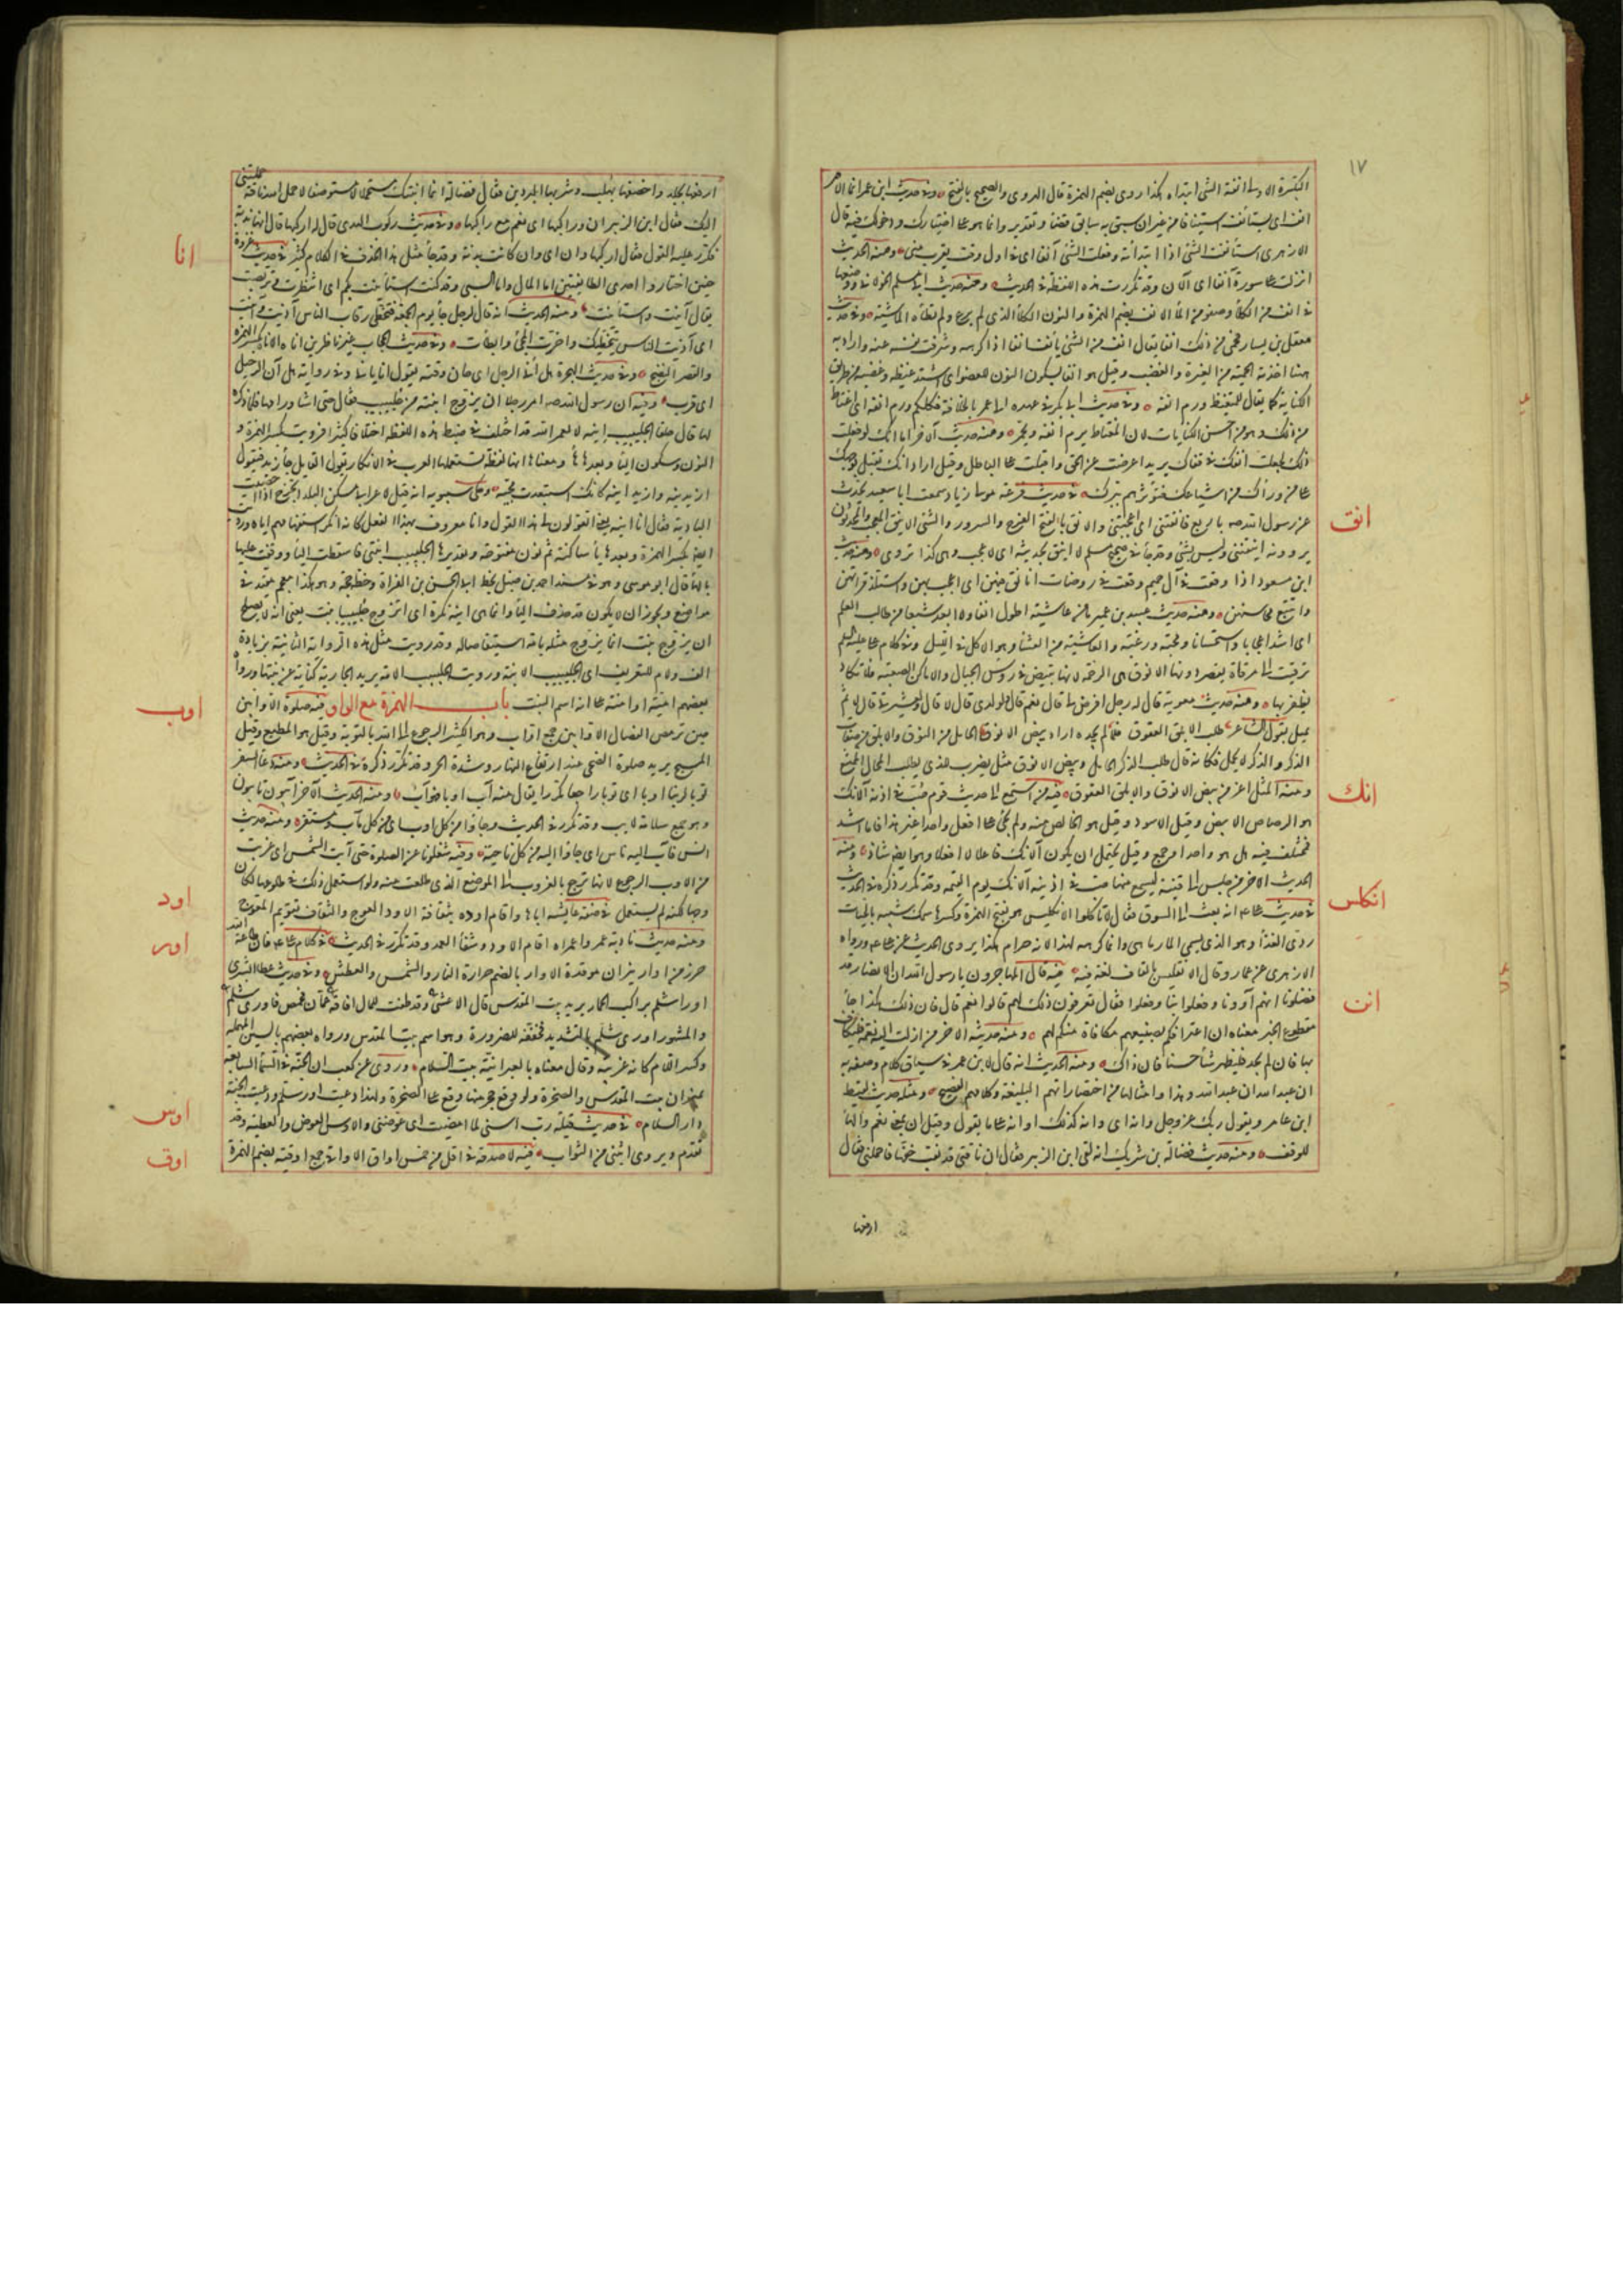 ١٧
التكبيرة الاولى انفة الشئ ابتداه هكذا روى بضم الهمزة قال الهروى والصحيح بالفتح ومنه حديث ابن عمر انما الامر
انف اى يستأنف استينافا من غير ان سبق به سابق قضاء وتقدير وانما هو على اختيارك ودخولك فيه قال
الازهرى استأنفت الشئ اذا ابتدأته وفعلت الشئ آنفا اى فى اول وقت يقرب منى ومنه الحديث
انزلت على سورة آنفا اى الآن وقد تكررت هذه اللفظة فى الحديث ومنه حديث ابى مسلم الخولانى ووضعها
فى انف من الكلأ وصفو من الماء الانف بضم الهمزة والنون الكلأ الذى لم يرع ولم تطأه الماشية وفى حديث
معقل بن يسار فحمى من ذلك انفا يقال انف من الشئ يأنف انفا اذا كرهه وشرفت نفسه عنه واراد به
ههنا اخذته الحمية من الغيرة والغضب وقيل هو انفا بسكون النون للعضو اى اشتد غيظه وغضبه من طريق
الكناية كما يقال للمتغيظ ورم انفه وفى حديث ابى بكر فى عهده الى عمر بالخلافة فكلكم ورم انفه اى اغتاظ
من ذلك وهو من احسن الكنايات لان المغتاظ يرم انفه ويحمر ومنه حديث آخر اما انك لو فعلت
ذلك لجعلت انفك فى قفاك يريد اعرضت عن الحق واقبلت على الباطل وقيل اراد انك تقبل بوجهك
على من وراءك من اشياعك فتؤثرهم ببرك فى حديث قزعة مولى زياد سمعت ابا سعيد يحدث
عن رسول الله صه باربع فانقننى اى اعجبننى والانق بالفتح الفرح والسرور والشئ الانيق المعجب والمحدثون
يروونه اينقننى وليس بشئ وقد جاء فى صحيح مسلم لا اينق بحديثه اى لا اعجب وهى كذا تروى ومنه حديث
ابن مسعود اذا وقعت فى آل حم وقعت فى روضات اتأنق فيهن اى اعجب بهن واستلذ قراءتهن
واتتبع محاسنهن ومنه حديث عبيد بن عمير ما من عاشية اطول انقا ولا ابعد شبعا من طالب العلم
اى اشد اعجابا واستحسانا ومحبة ورغبة والعاشية من العشاء وهو الاكل فى الليل وفى كلام على عليه السلم
ترقيت الى مرقاة يقصر دونها الانوق هى الرخمة لانها تبيض فى رؤس الجبال والاماكن الصعبة فلا تكاد
يظفر بها ومنه حديث معوية قال له رجل افرض لى قال نعم قال ولولدى قال لا قال ولعشيرتى قال لا ثم
تمثل بقول الشاعر طلب الابلق العقوق فلما لم يجده اراد بيض الانوق الحامل من النوق والابلق من صفات
الذكور والذكر لا يحمل فكانه قال طلب الذكر الحامل وبيض الانوق مثل يضرب للذى يطلب المحال الممتنع
ومنه المثل اعز من بيض الانوق والابلق العقوق فيه من استمع الى حديث قوم صُبّ فى اذنه الآنك
هو الرصاص الابيض وقيل الاسود وقيل هو الخالص منه ولم يجئ على افعل واحدا غير هذا فاما اشد
فمختلف فيه هل هو واحد او جمع وقيل يحتمل ان يكون الآنك فاعلا لا افعلا وهو ايضا شاذ ومنه
الحديث الآخر من جلس الى قينة ليسمع منها صب فى اذنيه الآنك يوم القيمة وقد تكرر ذكره فى الحديث
فى حديث على انه بعث الى السوق فقال لا تأكلوا الانكليس هو بفتح الهمزة وكسرها سمك شبيه بالحيات
ردئ الغذاء وهو الذى يسمى المارماهى وانما كرهه لهذا لا انه حرام هكذا يروى الحديث عن على ورواه
الازهرى عن عمار وقال الانقليس بالقاف لغة فيه فيه قال المهاجرون يا رسول الله ان الانصار قد
فضلونا انهم آوونا وفعلوا بنا وفعلوا فقال تعرفون ذلك لهم قالوا نعم قال فان ذلك هكذا جاء
مقطوع الخبر معناه ان اعترافكم بصنيعهم مكافاة منكم لهم ومنه حديثه الآخر من ازلت اليه نعمة فليكاف
بها فان لم يجد فليظهر ثناء حسنا فان ذاك ومنه الحديث انه قال لابن عمر فى سياق كلام وصفه به
ان عبد الله ان عبد الله وهذا وامثالها من اختصاراتهم البليغة وكلامهم الفصيح ومثله حديث لقيط
ابن عامر ويقول ربك عز وجل وانه اى وانه كذلك او انه على ما يقول وقيل ان بمعنى نعم والهاء
للوقف ومنه حديث فضالة بن شريك انه لقى ابن الزبير فقال ان ناقتى قد نقب خفها فاحملنى فقال
ارقعها
انق
انك
انكلس
انن
ارقعها بجلد واخصفها بهلب وسر بها البردين فقال فضالة انما اتيتك مستحملا لا مستوصفا لا حمل الله ناقة حملتنى
اليك فقال ابن الزبير ان وراكبها اى نعم مع راكبها وفى حديث ركوب الهدى قال له اركبها قال انها بدنة
فكرر عليه القول فقال اركبها وان اى وان كانت بدنة وقد جاء مثل هذا الحذف فى الكلام كثير فى حديث غزوة
حنين اختاروا احدى الطائفتين اما المال واما السبى وقد كنت استأنيت بكم اى انتظرت وتربصت
يقال آنيت واستأنيت ومنه الحديث انه قال لرجل جاء يوم الجمعة فتخطى رقاب الناس آذيت وآنيت
اى آذيت الناس بتخطيك واخرت المجئ وابطأت وفى حديث الحجاب غير ناظرين اناه الانا بكسر الهمزة
والقصر النضج وفى حديث الهجرة هل انى الرحيل اى حان وقته يقول انى يأنى وفى رواية هل آن الرحيل
اى قرب وفيه ان رسول الله صه امر رجلا ان يزوج ابنته من جليبيب فقال حتى اشاور امها فلما ذكره
لها قال حلقا الجليبيب انيه لا لعمر الله قد اختلف فى ضبط هذه اللفظة اختلافا كثيرا فرويت بكسر الهمزة و
النون وسكون الياء وبعدها هاء ومعناها انها لفظة تستعملها العرب فى الانكار يقول القائل جاء زيد فتقول
ازيدنيه وازيد انيه كانك استبعدت مجيئه وحكى سيبويه انه قيل لاعرابى سكن البلد اتخرج اذا اخصبت
البادية فقال انا انيه يعنى اتقولون لى هذا القول وانا معروف بهذا الفعل كانه انكر استفهامهم اياه ورويت
ايضا بكسر الهمزة وبعدها ياء ساكنة ثم نون مفتوحة وتقديرها الجليبيب ابنتى فاسقطت الياء ووقفت عليها
بالهاء قال ابو موسى وهو فى مسند احمد بن حنبل بخط ابى الحسن بن الفراة وخطه حجة وهو هكذا معجم مقيد فى
مواضع ويجوز ان لا يكون قد حذف الياء وانما هى ابنة نكرة اى اتزوج جليبيبا ببنت يعنى انه لا يصلح
ان يزوج ببنت انما يزوج مثله بامة استنقاصا له وقد رويت مثل هذه الرواية الثانية بزيادة
الف ولام للتعريف اى الجليبيب الابنة ورويت الجليبيب الامة يريد الجارية كناية عن بنتها ورواه
بعضهم امية او آمنة على انه اسم البنت باب الهمزة مع الواو فيه صلوة الاوابين
حين ترمض الفصال الاوابين جمع اواب وهو الكثير الرجوع الى الله بالتوبة وقيل هو المطيع وقيل
المسبح يريد صلوة الضحى عند ارتفاع النهار وشدة الحر وقد تكرر ذكره فى الحديث ومنه دعاء السفر
توبا لربنا اوبا اى توبا راجعا مكررا يقال منه آب اوبا فهو آئب ومنه الحديث الآخر آئبون تائبون
وهو جمع سلامة لآيب وقد تكرر فى الحديث وجاؤا من كل اوب اى من كل مآب ومستقر ومنه حديث
انس فآب اليه ناس اى جاؤا اليه من كل ناحية وفيه شغلونا عن الصلوة حتى آبت الشمس اى غربت
من الاوب الرجوع لانها ترجع بالغروب الى الموضع الذى طلعت منه ولو استعمل ذلك فى طلوعها لكان
وجها لكنه لم يستعمل فى صفة عايشة اباها واقام اوده بثقافه الاود العوج والثقاف تقويم المعوج
ومنه حديث نادبة عمر واعمراه اقام الاود وشفا العمد وقد تكرر فى الحديث فى كلام على فان طاعة الله
حرز من اوار نيران موقدة الاوار بالضم حرارة النار والشمس والعطش وفى حديث عطا ابشرى
اورى شلم براكب الحمار يريد بيت المقدس قال الاعشى وقد طفت للمال افاقه عمان فحمص فاورى شلم
والمشهور اورى شلم بالتشديد فخففه للضرورة وهو اسم بيت المقدس ورواه بعضهم بالسين المهملة
وكسر اللام كانه عربه وقال معناه بالعبرانية بيت السلام وروى عن كعب ان الجنة فى السماء السابعة
بميزان بيت المقدس والصخرة ولو وقع حجر منها وقع على الصخرة ولهذا دعيت اورشلم ودعيت الجنة
دار السلام فى حديث قيلة رب اسنى لما امضيت اى عوضنى والاوس العوض والعطية وقد
تقدم ويروى اثبنى من الثواب فيه لا صدقة فى اقل من خمس اواق الاواقى جمع اوقية بضم الهمزة
انا
اوب
اود
اور
اوس
اوق